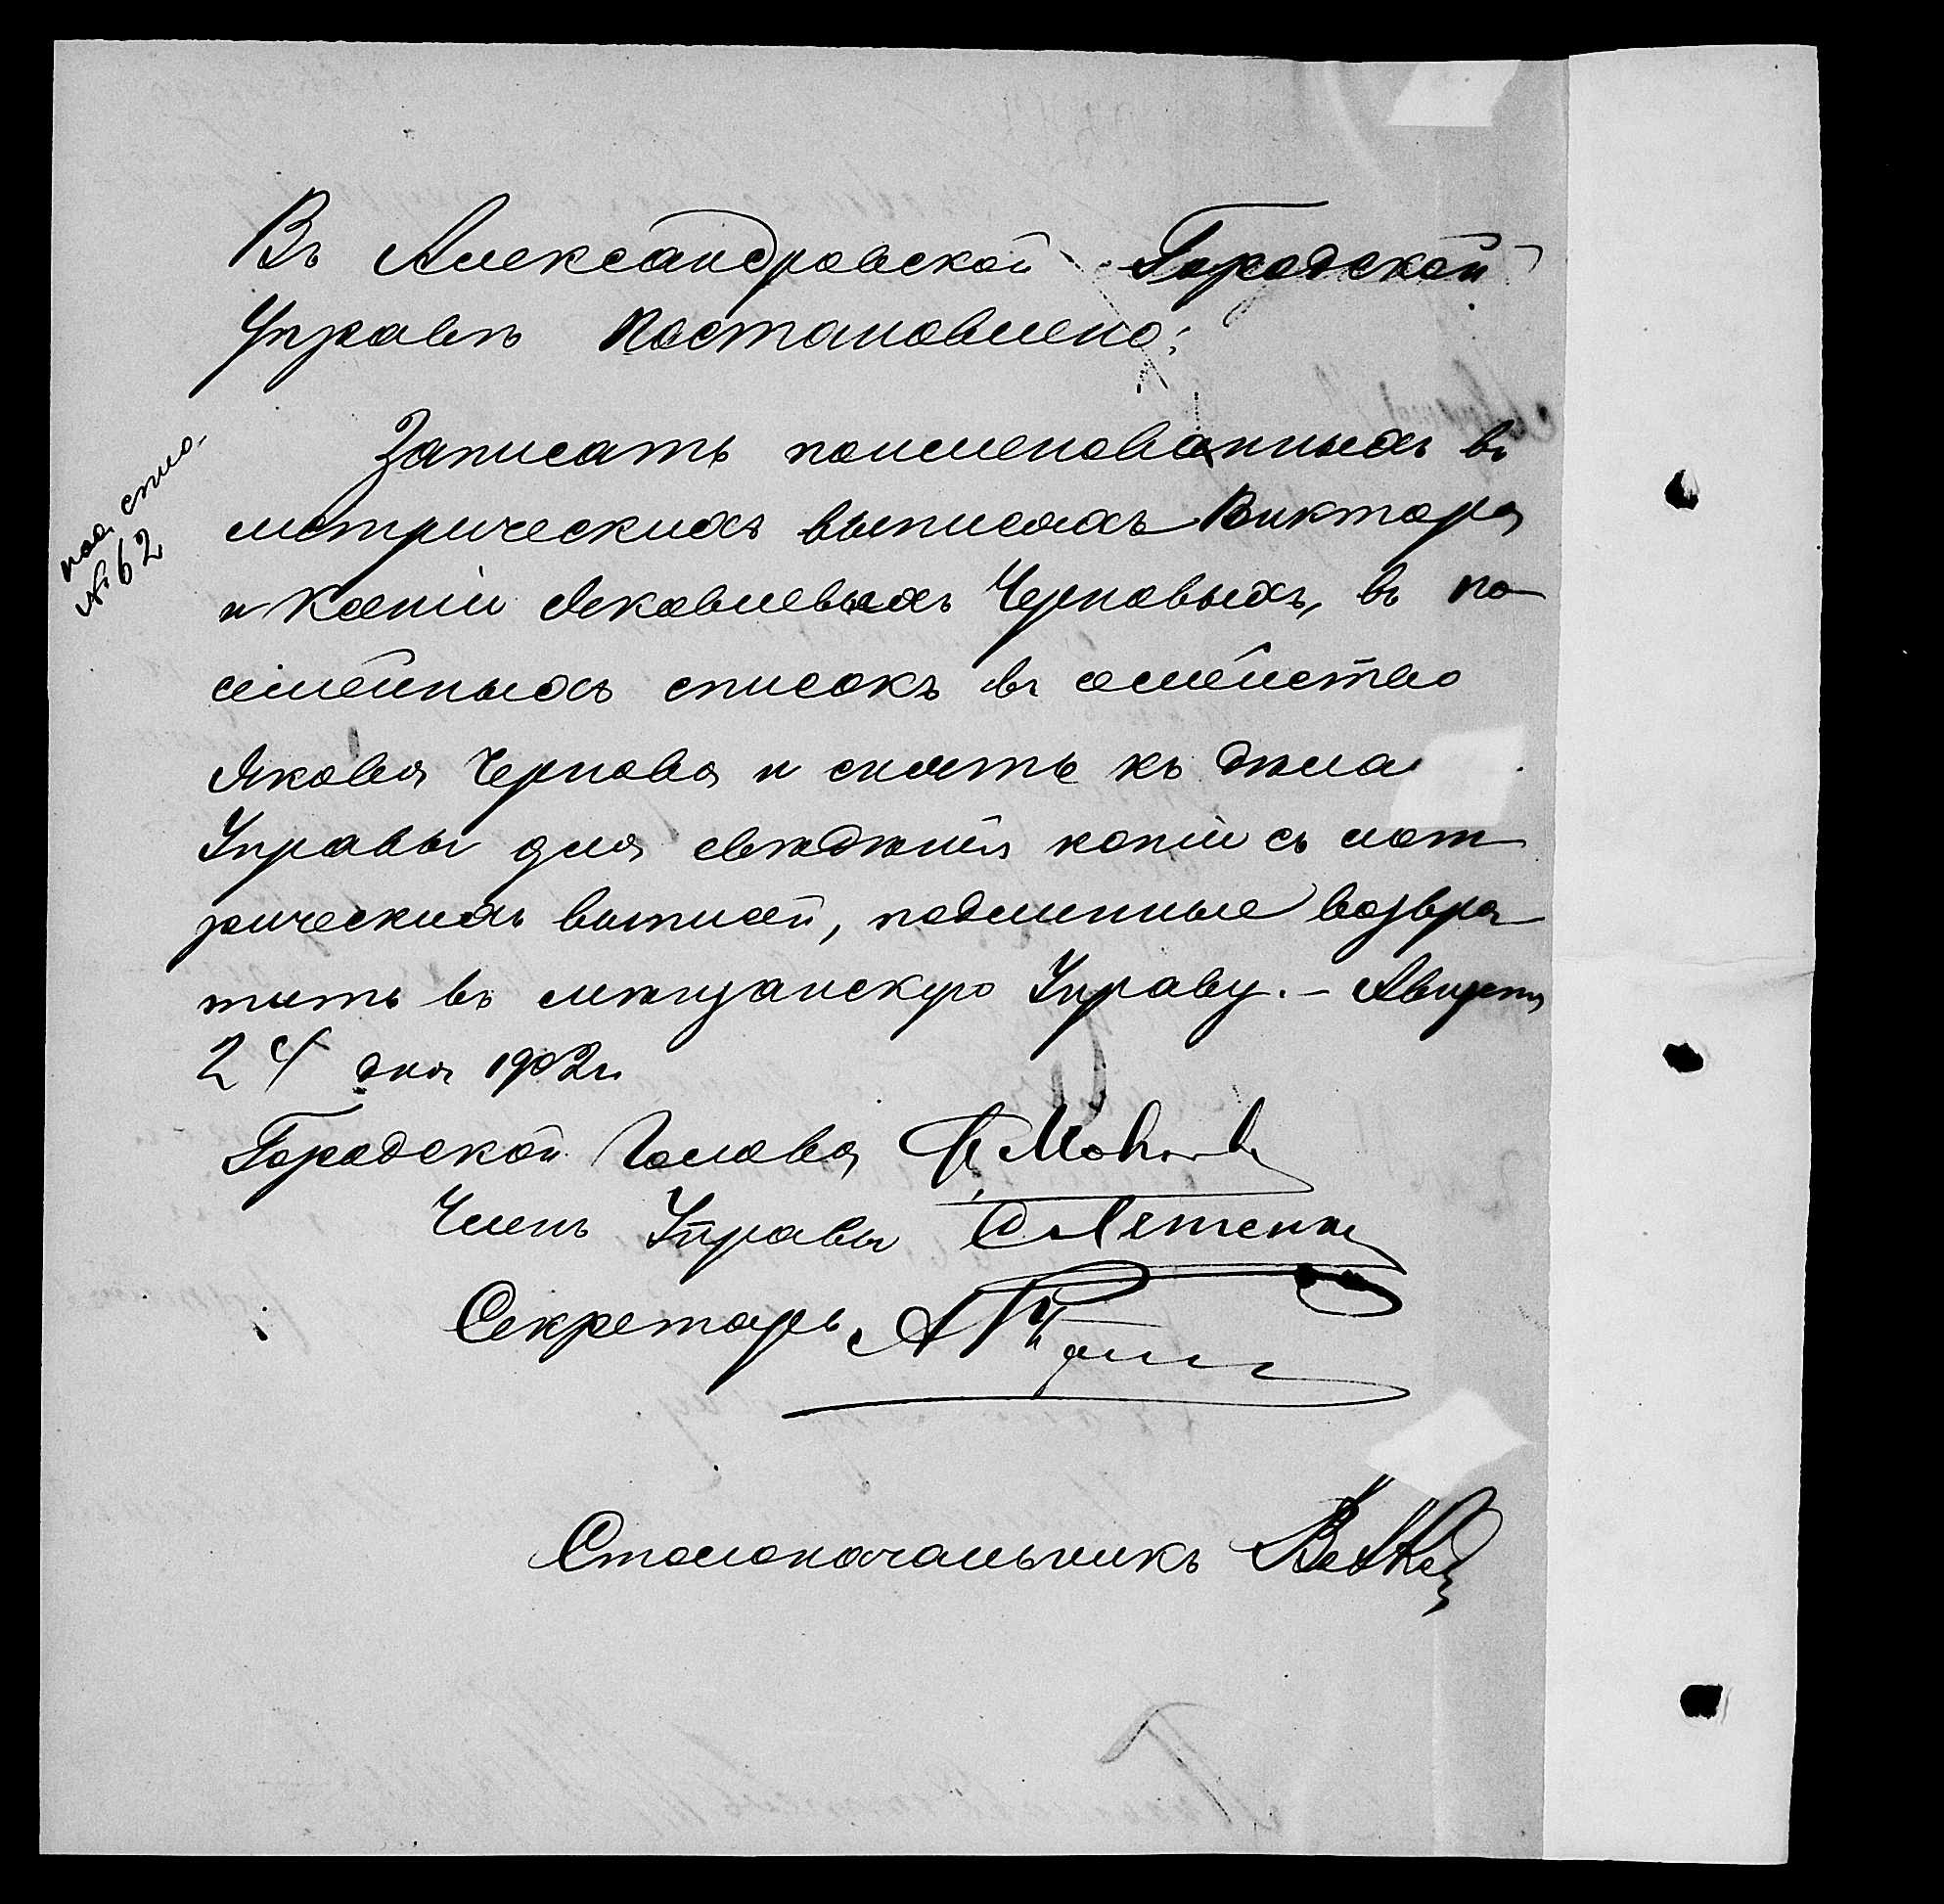 Въ Александровской Городской
Управѣ постановлено:
Записать поименованныхъ въ
метрическихъ выписяхъ Виктора
и Ксенiи Яковлевыхъ Черновыхъ, въ по
семейныхъ списокъ въ семейство
Якова Чернова и снять къ дѣла
Управы для свѣдѣнiя копiи съ мет
рическихъ выписей, подлинные возвра
тить въ мѣщанскую Управу. – Августа
24 дня 1902 г.
Городской Голова
Членъ Управы
Секретарь
Столоначальникъ
№ 62